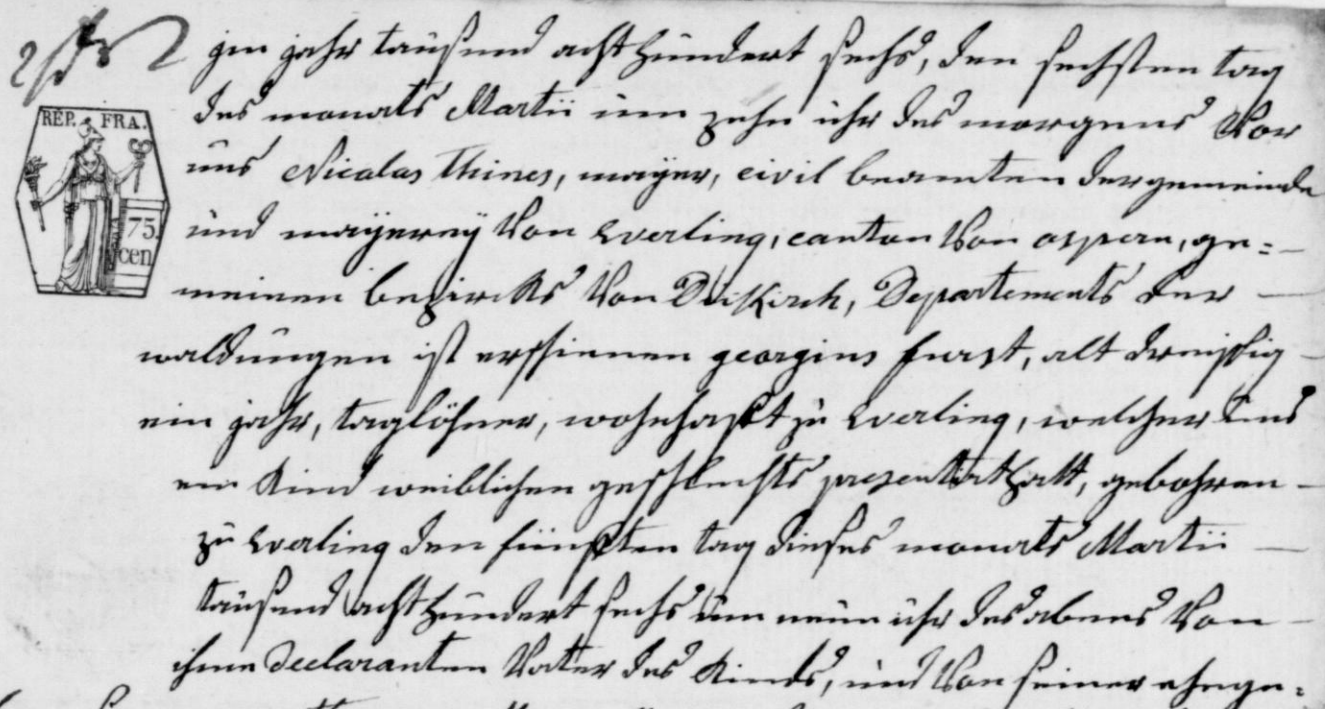 REP. FRA.
75.
cen
jm jahr tausend achthundert sechs, den sechsten tag
des monats Martii um zehn uhr des morgens Vor
uns Nicolas Thines, mayer, civil beamten der gemeinde
und mayerey Von Everling, canton Von ospern, ge=
meinen bezircks Von Dikirch, Departements der
waldungen ist erschienen georgius furst, alt dreissig
ein jahr, taglöhner, wohnhafft zu Everling, welcher uns
ein Kind weiblichen geschlechts presentirt hatt, gebohren
zu Everling den fünfften tag dieses monats Martii
tausend achthundert sechs um neun uhr des abens Von
ihme Declaranten Vater des Kinds, und Von seiner ehege=